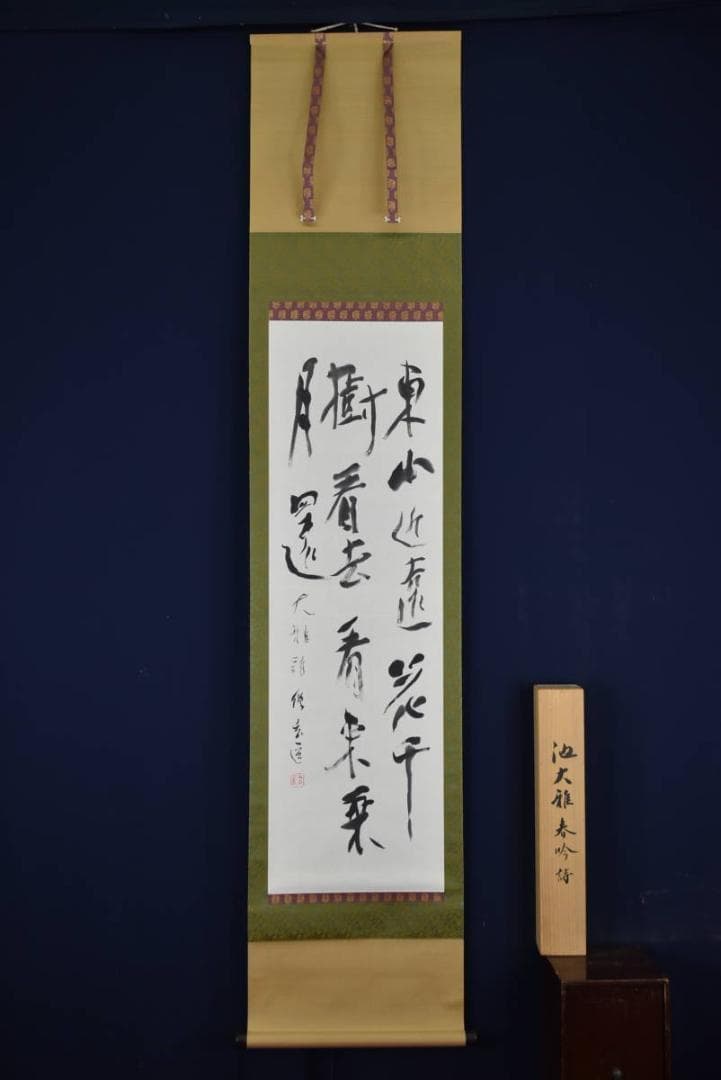 東山近遠花千
樹看去看来乗
月還 大雅詩
池大雅春吟詩